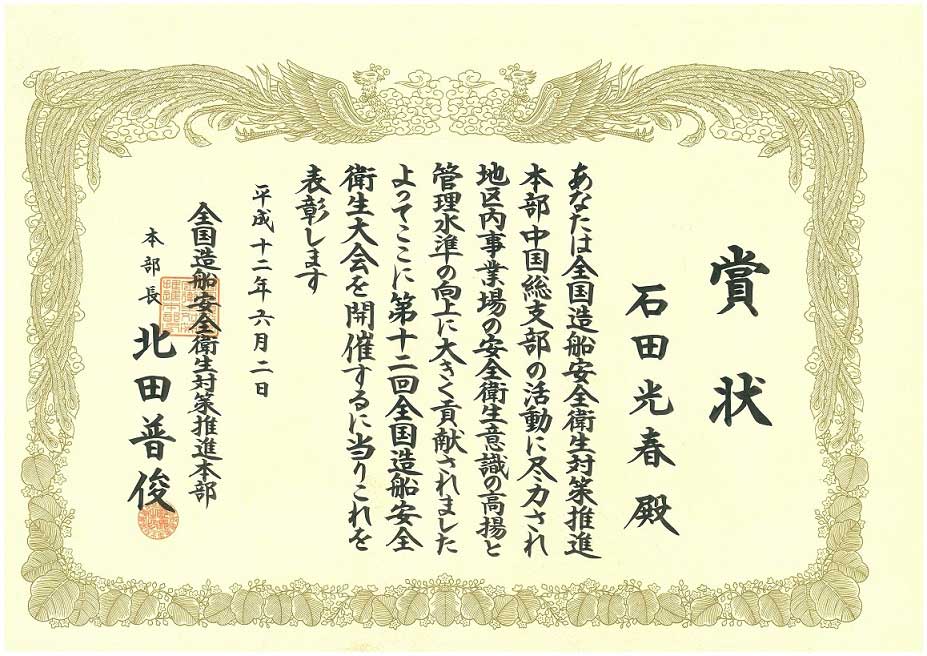 賞状
石田光春 殿
あなたは全国造船安全衛生対策推進
本部中国総支部の活動に尽力され
地区内事業場の安全衛生意識の高揚と
管理水準の向上に大きく貢献されました
よってここに第十二回全国造船安全
衛生大会を開催するに当りこれを
表彰します
平成十二年六月二日
全国造船安全衛生対策推進本部
本部長 北田普俊